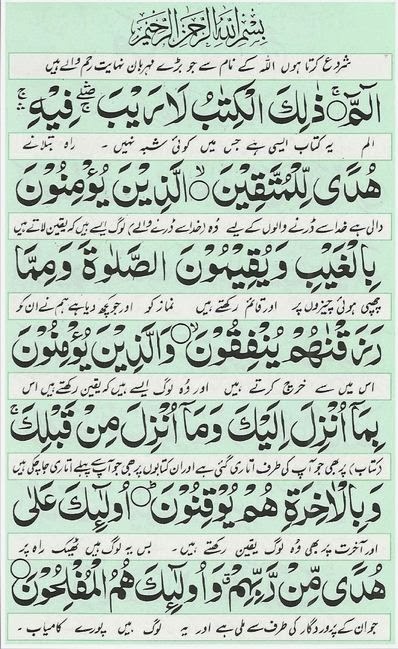 بِسْمِ اللّٰهِ الرَّحْمٰنِ الرَّحِيْمِ
شروع کرتا ہوں اللہ کے نام سے جو بڑے مہربان نہایت رحم والے ہیں
الٓمّٓ ۚ ذٰلِكَ الْكِتٰبُ لَا رَيْبَ ۛ فِيْهِ ۛ
الم یہ کتاب ایسی ہے جس میں کوئی شبہ نہیں ۔ راہ بتلانے
هُدًى لِّلْمُتَّقِيْنَ ۙ الَّذِيْنَ يُؤْمِنُوْنَ
والی ہے خدا سے ڈرنے والوں کے لیے وُہ (خدا سے ڈرنے والے) لوگ ایسے ہیں کہ یقین لاتے ہیں
بِالْغَيْبِ وَيُقِيْمُوْنَ الصَّلٰوةَ وَمِمَّا
چھپی ہوئی چیزوں پر اور قائم رکھتے ہیں نماز کو اور جو کچھ دیا ہے ہم نے ان کو
رَزَقْنٰهُمْ يُنْفِقُوْنَ ۙ وَالَّذِيْنَ يُؤْمِنُوْنَ
اس میں سے خرچ کرتے ہیں اور وُہ لوگ ایسے ہیں کہ یقین رکھتے ہیں اس
بِمَآ اُنْزِلَ اِلَيْكَ وَمَآ اُنْزِلَ مِنْ قَبْلِكَ ۚ
(کتاب) پر بھی جو آپ کی طرف اتاری گئی ہے اور ان کتابوں پر بھی جو آپ سے پہلے اتاری جا چکی ہیں
وَبِالْاٰخِرَةِ هُمْ يُوْقِنُوْنَ ؕ اُولٰٓئِكَ عَلٰى
اور آخرت پر بھی وُہ لوگ یقین رکھتے ہیں ۔ بس یہ لوگ ہیں ٹھیک راہ پر
هُدًى مِّنْ رَّبِّهِمْ ۗ وَاُولٰٓئِكَ هُمُ الْمُفْلِحُوْنَ
جو ان کے پروردگار کی طرف سے ملی ہے اور یہ لوگ ہیں پورے کامیاب ۔